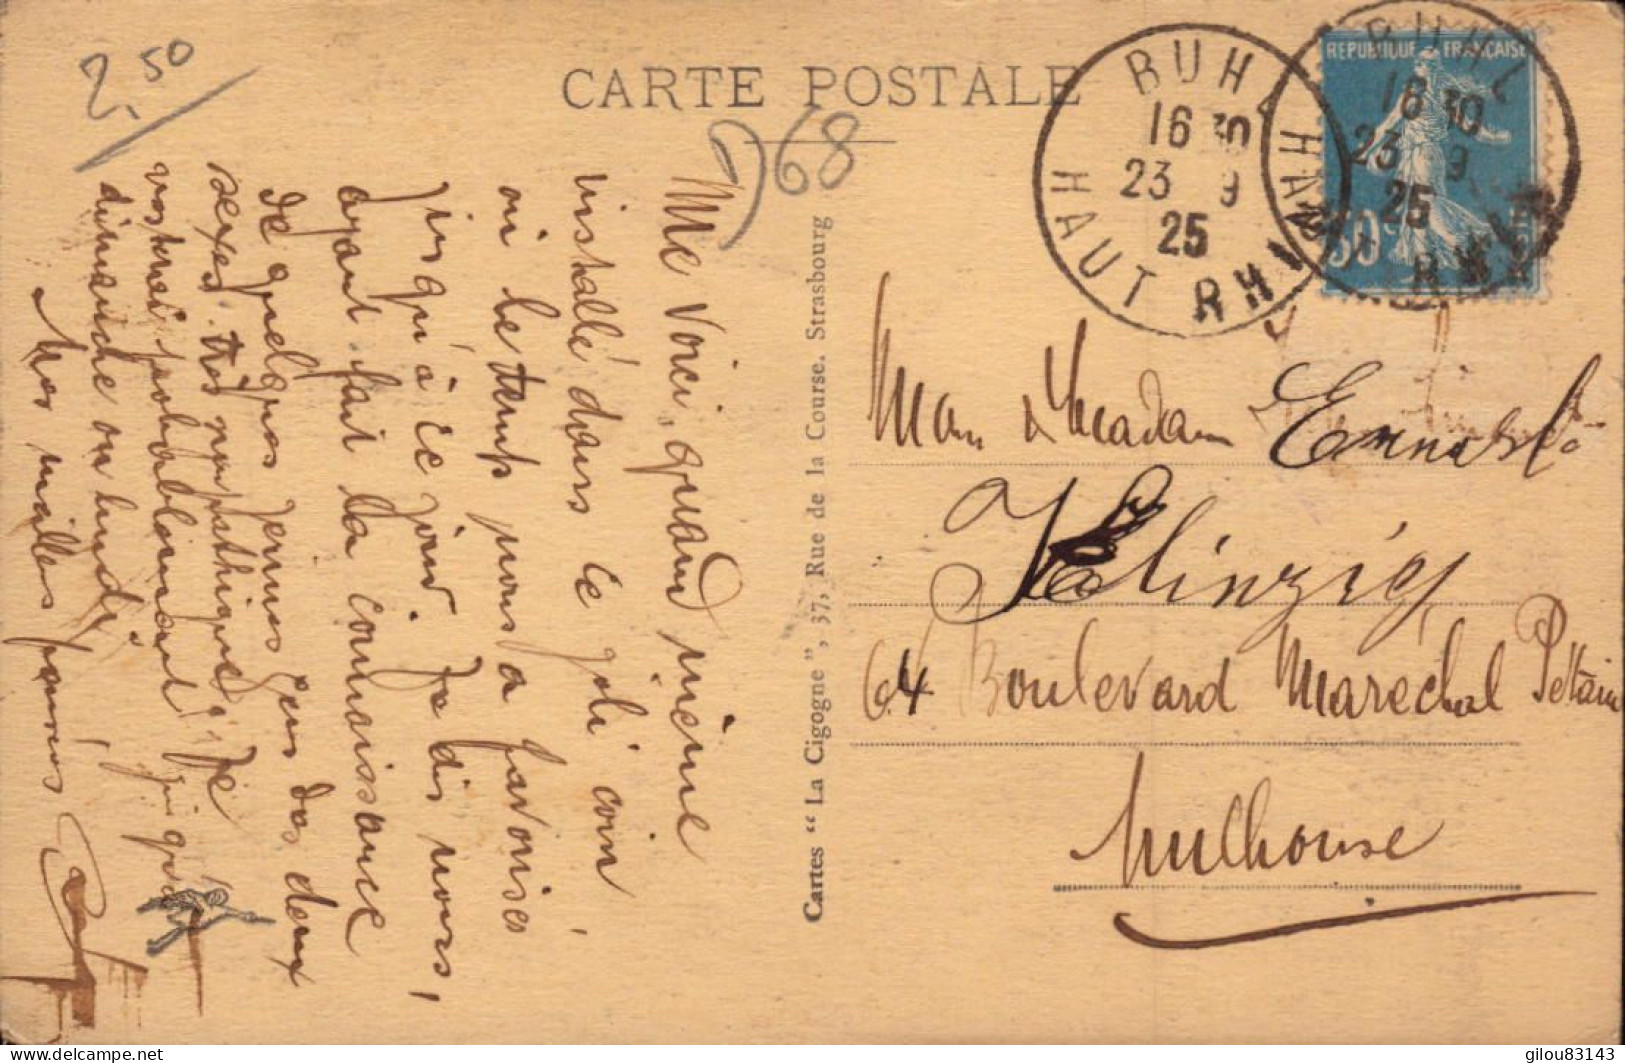 2,50
CARTE POSTALE
968
BUHL
16 30
23 9
25
HAUT RHIN
REPUBLIQUE FRANÇAISE
50c
BUHL
16 30
23 9
25
HAUT RHIN
Me voici, quand même
installé dans ce joli coin
où le temps nous a favorisés
jusqu'à ce jour. Je dis nous,
ayant fait la connaissance
de quelques jeunes gens des deux
sexes, très sympathiques. Je
resterai probablement jusqu'à
dimanche ou lundi.
Mes meilleurs
Cartes "La Cigogne", 37, Rue de la Course. Strasbourg
Monsieur & Madame Ernest
Klinzig
64 Boulevard Maréchal Pettain
Mulhouse
gilou83143
delcampe.net